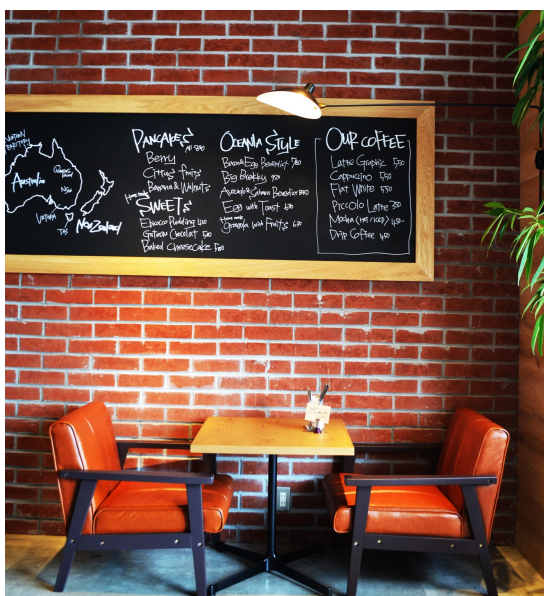 Northern
Territory
Australia
Queensland
NSW
Victoria
TAS
New Zealand
PANCAKES
All
Berry
Citrus fruits
Banana & Walnuts
Home made
SWEETS
Gateau Chocolat
Baked Cheesecake
OCEANIA STYLE
Bacon & Egg Benedict
Big Brekky
Avocado & Salmon Benedict
Egg with Toast
Home made
Granola with Fruits
OUR COFFEE
Latte Graphic 550
Cappuccino 550
Flat White 550
Piccolo Latte
Mocha
Drip Coffee